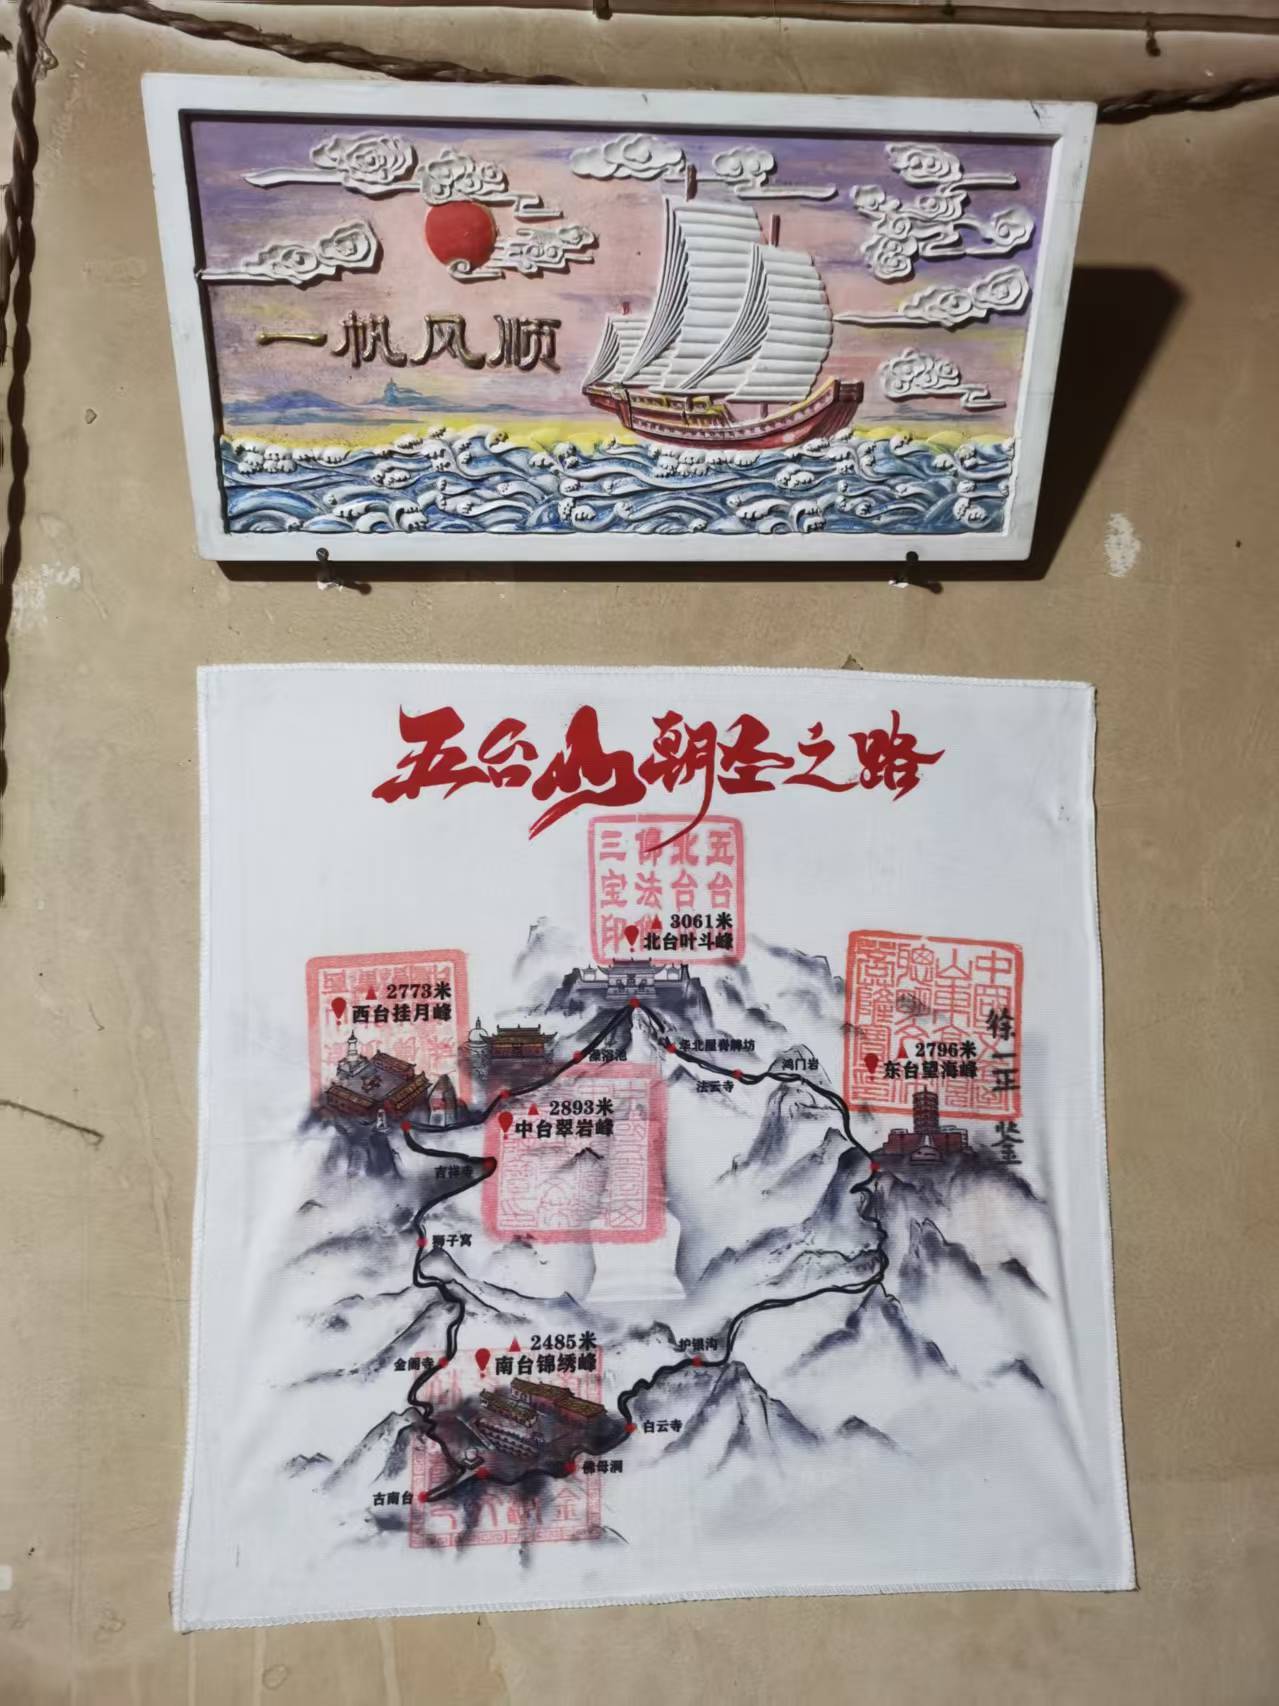 一帆风顺
五台山朝圣之路
五台
北台
佛法
三宝印
3061米
北台叶斗峰
2773米
西台挂月峰
2796米
东台望海峰
徐一正
2893米
中台翠岩峰
澡浴池
华北屋脊牌坊
法云寺
鸿门岩
吉祥寺
狮子窝
金阁寺
2485米
南台锦绣峰
护银沟
白云寺
佛母洞
古南台